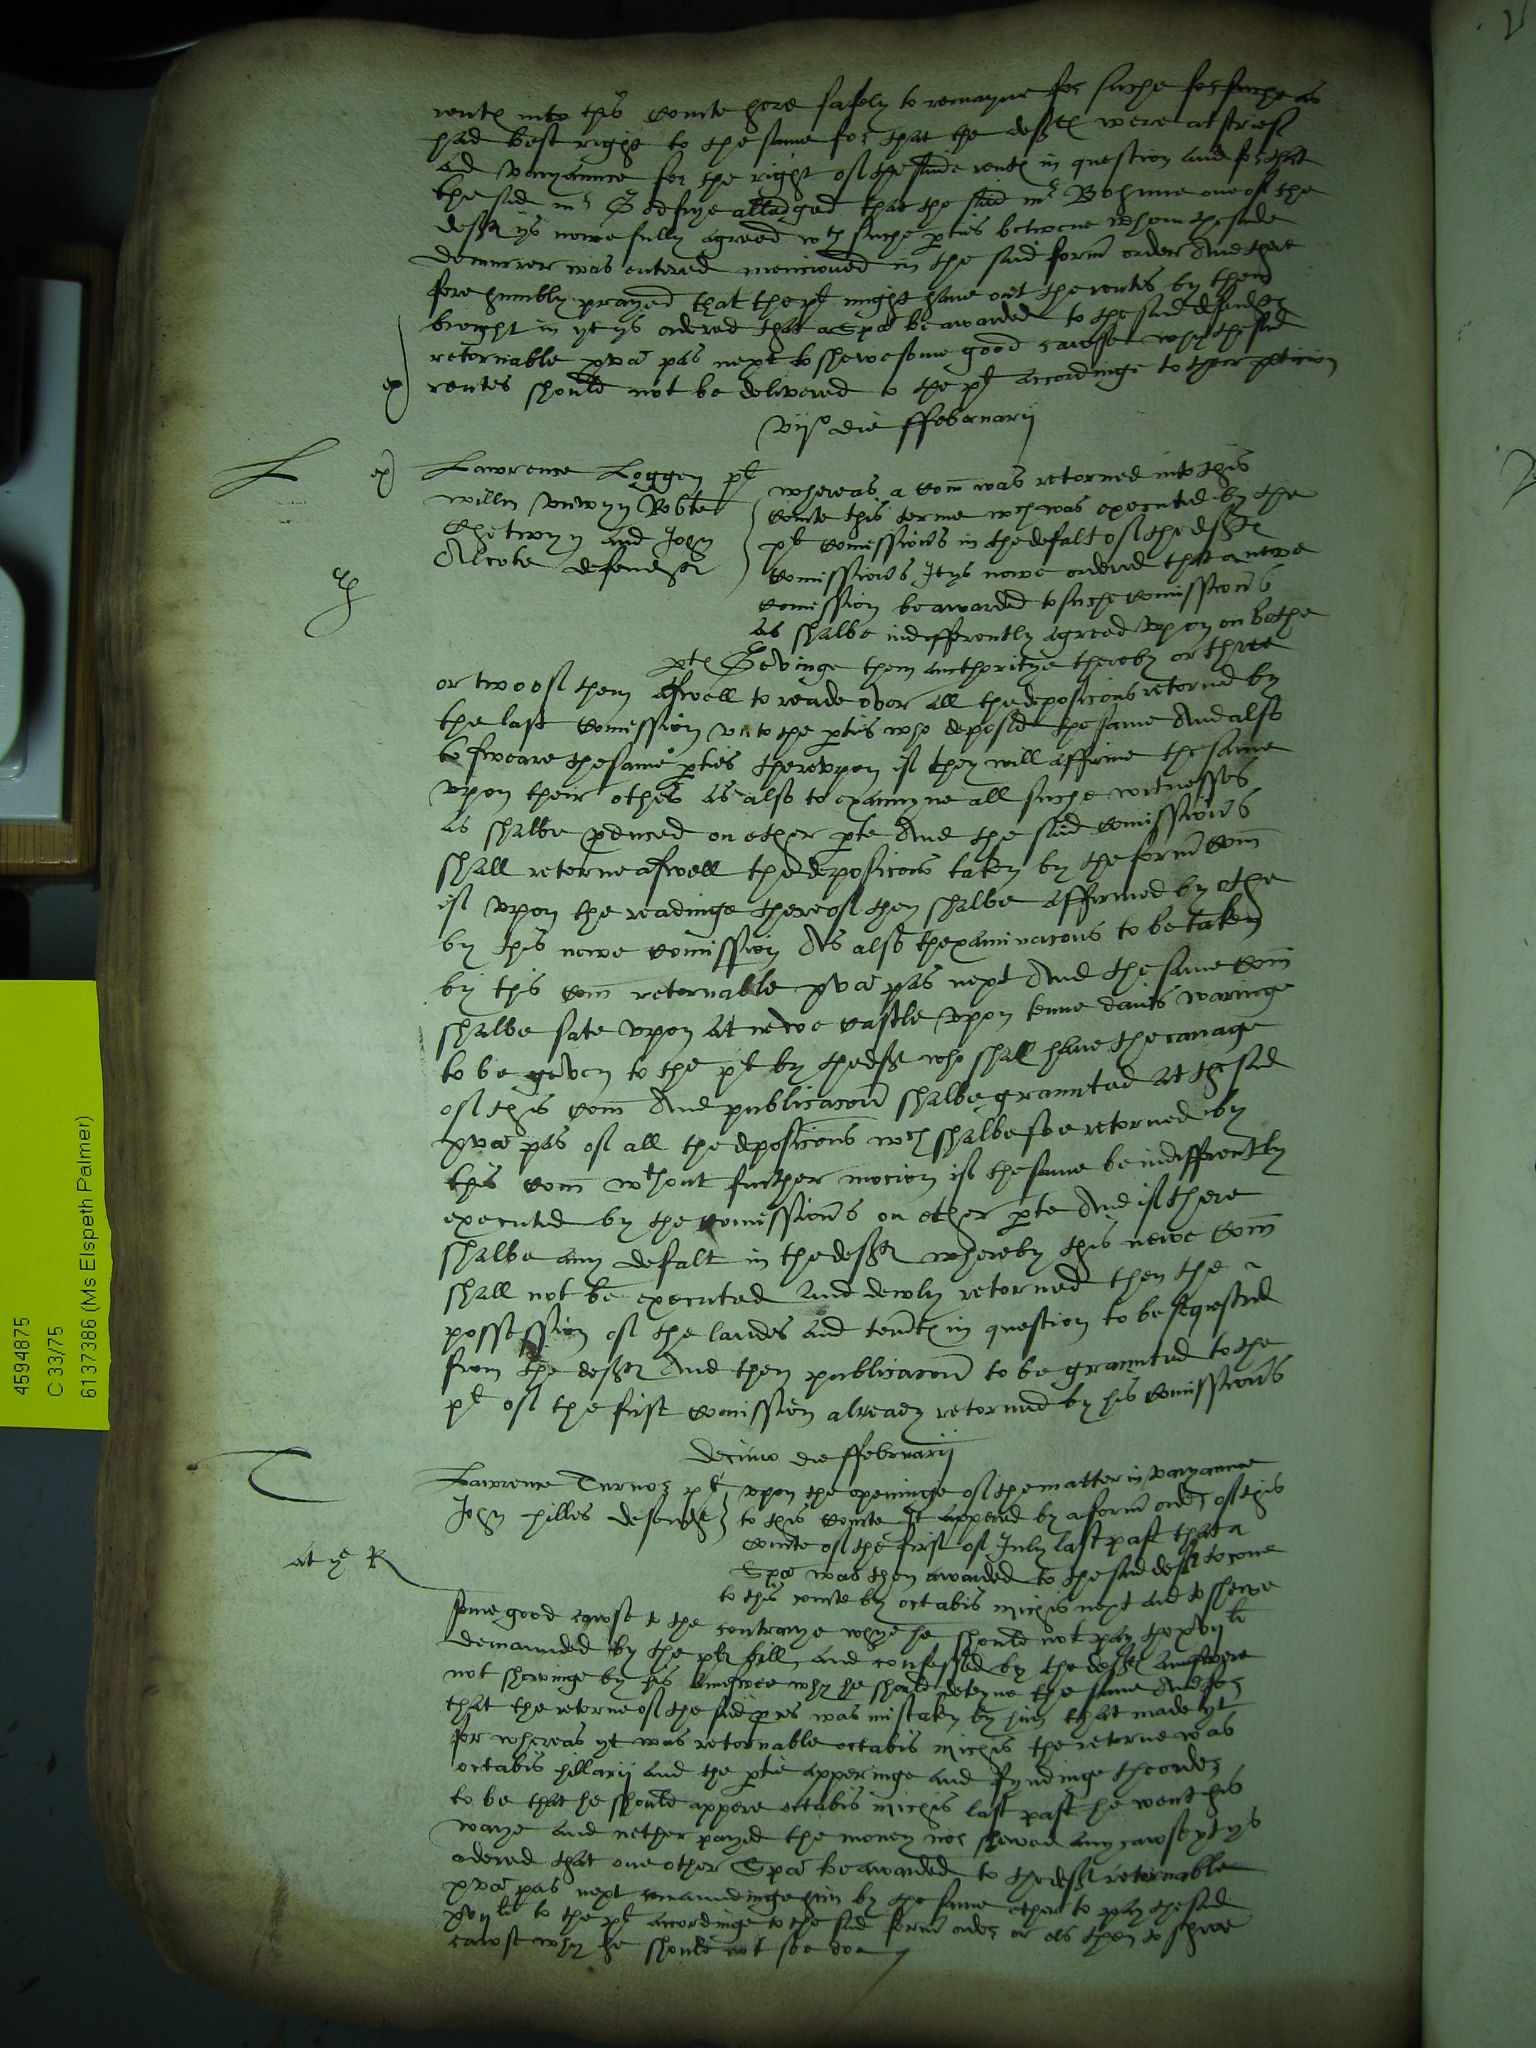 rents into this courte here safely to remayne for suche for suche as
had best right to the same for that the defts were at striefe
ad varyaunce for the right of the saide rents in question and for that
the said mr Godfrye alledged that the said mr Bohune one of the
defts ys nowe fully agreed wth suche pties betwene whom the saide
demurrer was entered mencioned in the said form order And there
fore humbly prayed that the plt might have out the rentes by them
brought in yt ys ordered that a Spa be awarded to the said defendts
retornable xva pas next to shewe some good cawse why the said
ex rentes should not be delivered to the plt accordinge to their peticion
vijo die ffebruarij
L ex Lawrence Loggen plt
willm Unwyn Robte
Chetwyn and John
Alcoke defendtes
whereas a Com was retorned into this
Courte this terme wch was executed by the
plts Comissiors in the defalt of the defts
Comissiors It ys nowe ordered that a newe
Comission be awarded to suche Comissiors
as shalbe indifferently agreed upon on bothe
pts Gevinge them authoritye thereby or three
or two of them aswell to reade over all the deposicons retorned by
the last Comission unto the pties who deposed the same And also
to sweare the same pties thereupon if they will affirme the same
upon their othes As also to examyne all suche witnesses
as shalbe pduced on ether pte And the said Comissiors
shall retorne aswell the deposicons taken by the form Com
if upon the readinge thereof then shalbe affirmed by the
by this newe Comission As also thexaminacons to be taken
by this Com retornable xva pas next And the same Com
shalbe sate upon at newe Castle upon tenne daies waringe
to be geven to the plt by the deft who shall have the cariage
of this Com And publicacon shalbe graunted at the said
xva pas of all the deposicons wch shalbe soe retorned by
this Com wthout further mocion if the same be indifferently
executed by the Comissiors on ether pte And if there
shalbe any defalt in the deft whereby this newe Com
shall not be executed and dewly retorned then the
possession of the landes and tents in question to be sequestred
from the deft And then publicacon to be graunted to the
plt of the first Comission already retorned by his Comissiors
decimo die ffebruarij
Lawrence Turnor plt
John hilles defendt
at ye R
upon the openinge of the matter in varyaunce
to this Courte It appered by a form order of this
Courte of the first of July last past that a
Spa was then awarded to the said deft to come
to this courte by octabis michis next and to shewe
some good cawse to the contrarye whye he should not pay the xvij li
demaunded by the plts bill and confessed by the defts answere
not shewinge by his answere why he should deteyne the same And for
that the retorne of the said pces was mistaken by him that made yt
for whereas yt was retornable octabis michis the retorne was
octabis hillarij and the ptie apperinge and fyndinge the order
to be that he should appere octabis michis last past he went his
waye and nether payed the money nor shewed any cawse yt ys
ordered that one other Spa be awarded to the deft retornable
xva pas next comaundinge him by the same ether to pay the said
xvij li to the plt accordinge to the said form order or els then to shewe
cawse why he should not soe doe
4594875
C 33/75
6137386 (Ms Elspeth Palmer)